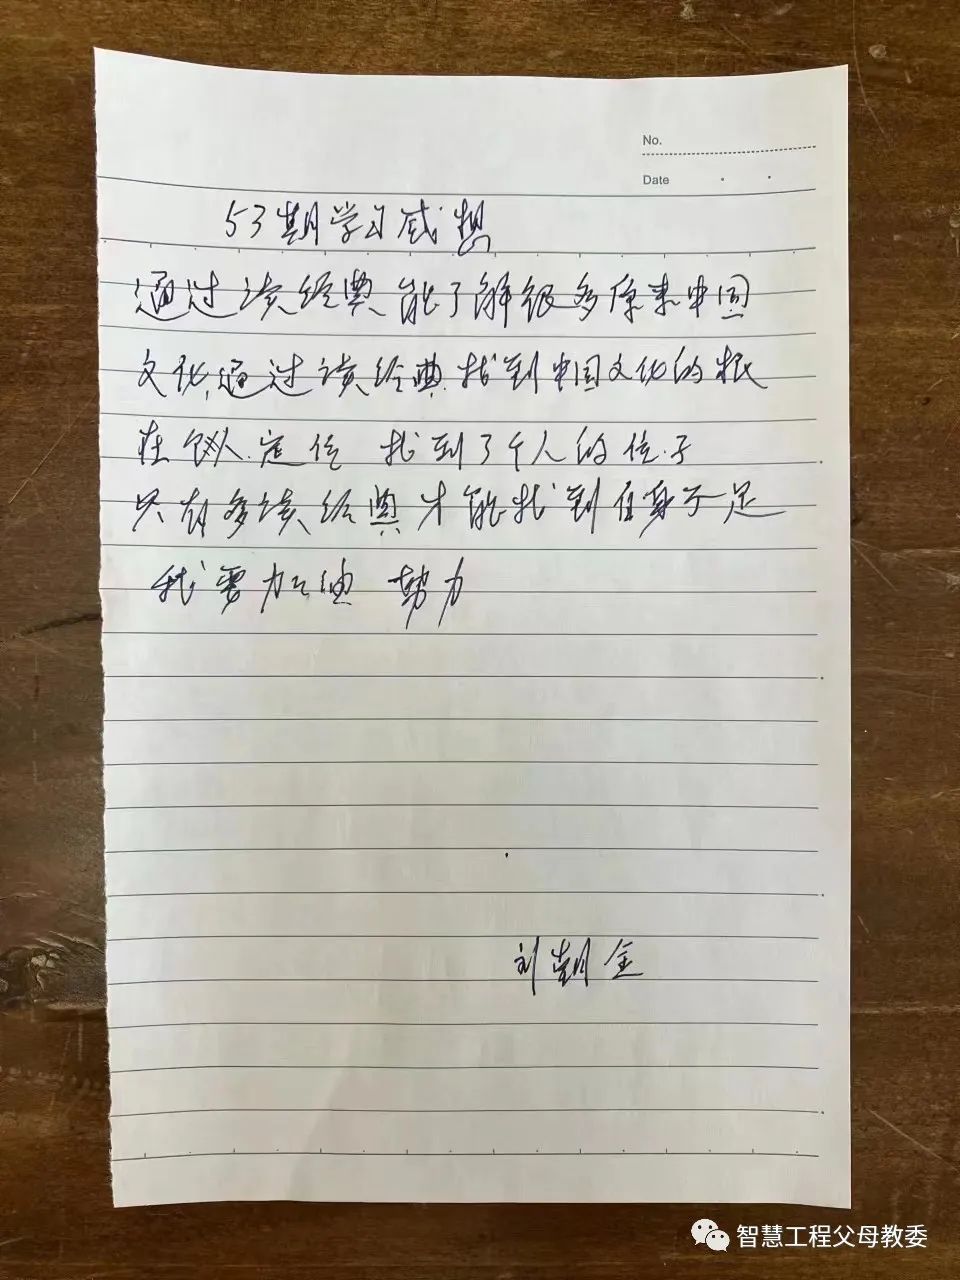 No.
Date
53期学习感想
通过读经典能了解很多原来中国
文化,通过读经典.找到中国文化的根
在 人.定位 找到了个人的位子
只有多读经典才能找到自身不足
我要加油 努力
刘朝金
智慧工程父母教委